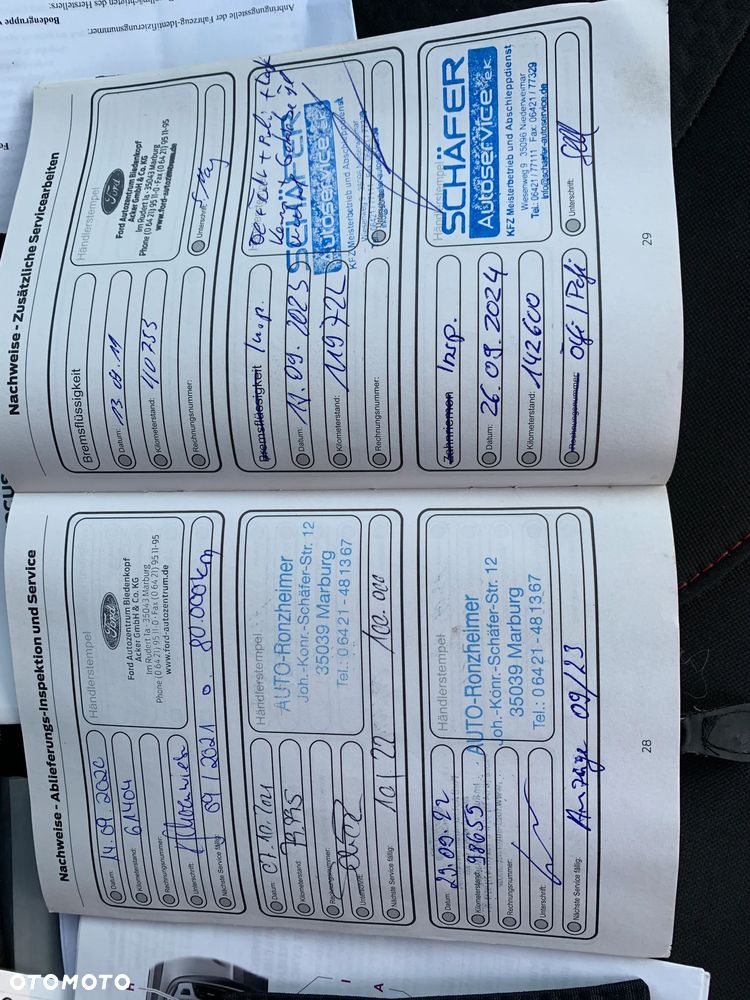 Anbringungsstelle der Fahrzeug-Identifizierungsnummer:
Bodengruppe
Nachweise - Ablieferungs-Inspektion und Service
Datum: 14.09.2020
Kilometerstand: 61404
Rechnungsnummer:
Unterschrift:
Nächste Service fällig: 09/2021 o. 80.000km
Händlerstempel
Ford
Ford Autozentrum Biedenkopf
Acker GmbH & Co. KG
Im Rudert 1a · 35043 Marburg
Phone (0 64 21) 95 11-0 · Fax (0 64 21) 95 11-95
www.ford-autozentrum.de
Datum: 07.10.2021
Kilometerstand: 79.995
Rechnungsnummer:
Unterschrift:
Nächste Service fällig: 10/22 100.000
Händlerstempel
AUTO-Ronzheimer
Joh.-Konr.-Schäfer-Str. 12
35039 Marburg
Tel.: 0 64 21 - 48 13 67
Datum: 29.09.22
Kilometerstand: 98655
Rechnungsnummer:
Unterschrift:
Nächste Service fällig: Anzeige 09/23
Händlerstempel
AUTO-Ronzheimer
Joh.-Konr.-Schäfer-Str. 12
35039 Marburg
Tel.: 0 64 21 - 48 13 67
28
Nachweise - Zusätzliche Servicearbeiten
Bremsflüssigkeit
Datum: 13.08.19
Kilometerstand: 40753
Rechnungsnummer:
Händlerstempel
Ford
Ford Autozentrum Biedenkopf
Acker GmbH & Co. KG
Im Rudert 1a · 35043 Marburg
Phone (0 64 21) 95 11-0 · Fax (0 64 21) 95 11-95
www.ford-autozentrum.de
Unterschrift:
Bremsflüssigkeit Insp.
Datum: 19.09.2023
Kilometerstand: 119722
Rechnungsnummer:
SCHÄFER
Autoservice e.K.
KFZ Meisterbetrieb und Abschleppdienst
Zahnriemen Insp.
Datum: 26.09.2024
Kilometerstand: 142600
Rechnungsnummer: Ölfi / Pofi
Händlerstempel
SCHÄFER
Autoservice e.K.
KFZ Meisterbetrieb und Abschleppdienst
Wiesenweg 9 35096 Niederweimar
Tel.: 06421 / 77111 Fax: 06421 / 77329
info@schaefer-autoservice.de
Unterschrift:
29
OTOMOTO